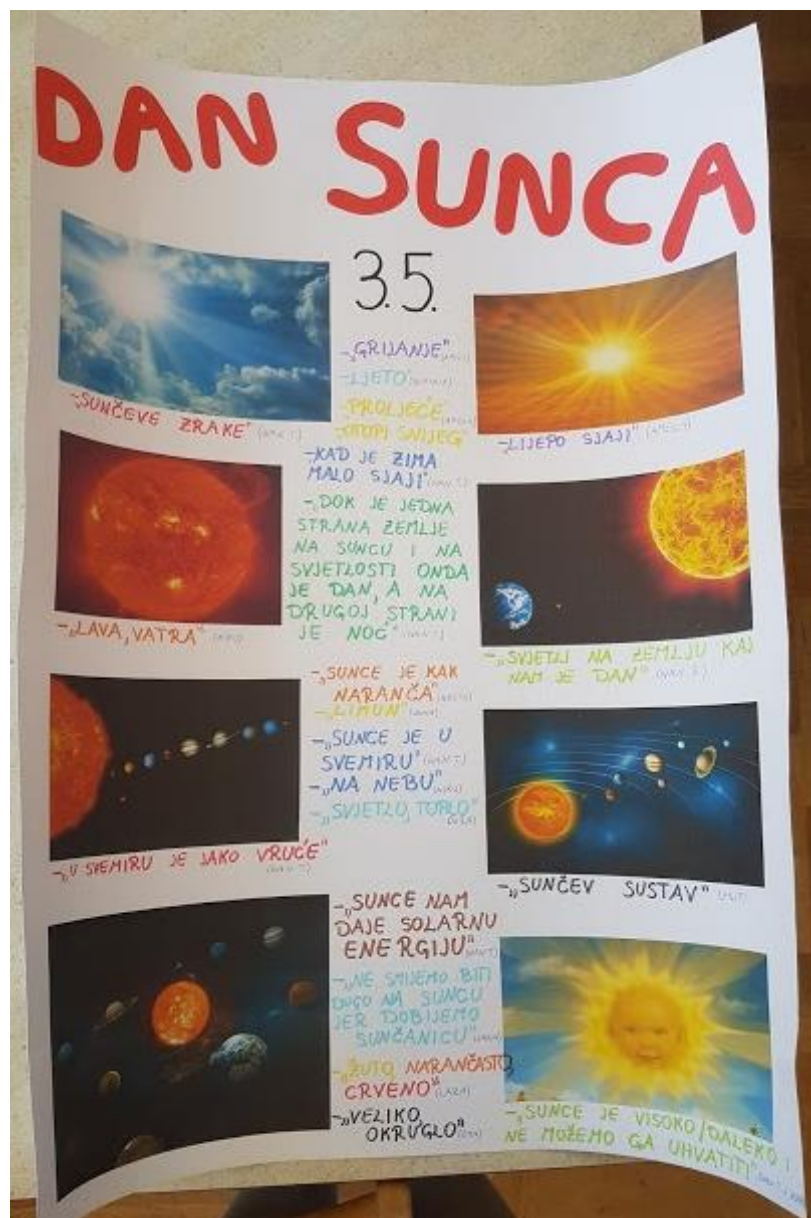 DAN SUNCA
3.5.
-„GRIJANJE"
-LJETO"
-PROLJEĆE
-OTOPI SNIJEG"
-„SUNČEVE ZRAKE"
-„LIJEPO SJAJI"
-KAD JE ZIMA
MALO SJAJI"
-„DOK JE JEDNA
STRANA ZEMLJE
NA SUNCU I NA
SVJETLOSTI ONDA
JE DAN, A NA
DRUGOJ STRANI
JE NOĆ"
-„LAVA, VATRA"
-„SVJETLI NA ZEMLJU KAJ
NAM JE DAN"
-„SUNCE JE KAK
NARANČA"
-„LIMUN"
-„SUNCE JE U
SVEMIRU"
-„NA NEBU"
-„SVJETLO, TOPLO"
-„U SVEMIRU JE JAKO VRUĆE"
-„SUNČEV SUSTAV"
-„SUNCE NAM
DAJE SOLARNU
ENERGIJU"
-„NE SMIJEMO BITI
DUGO NA SUNCU
JER DOBIJEMO
SUNČANICU"
-„ŽUTO, NARANČASTO,
CRVENO"
-„VELIKO,
OKRUGLO"
-„SUNCE JE VISOKO/DALEKO I
NE MOŽEMO GA UHVATITI"